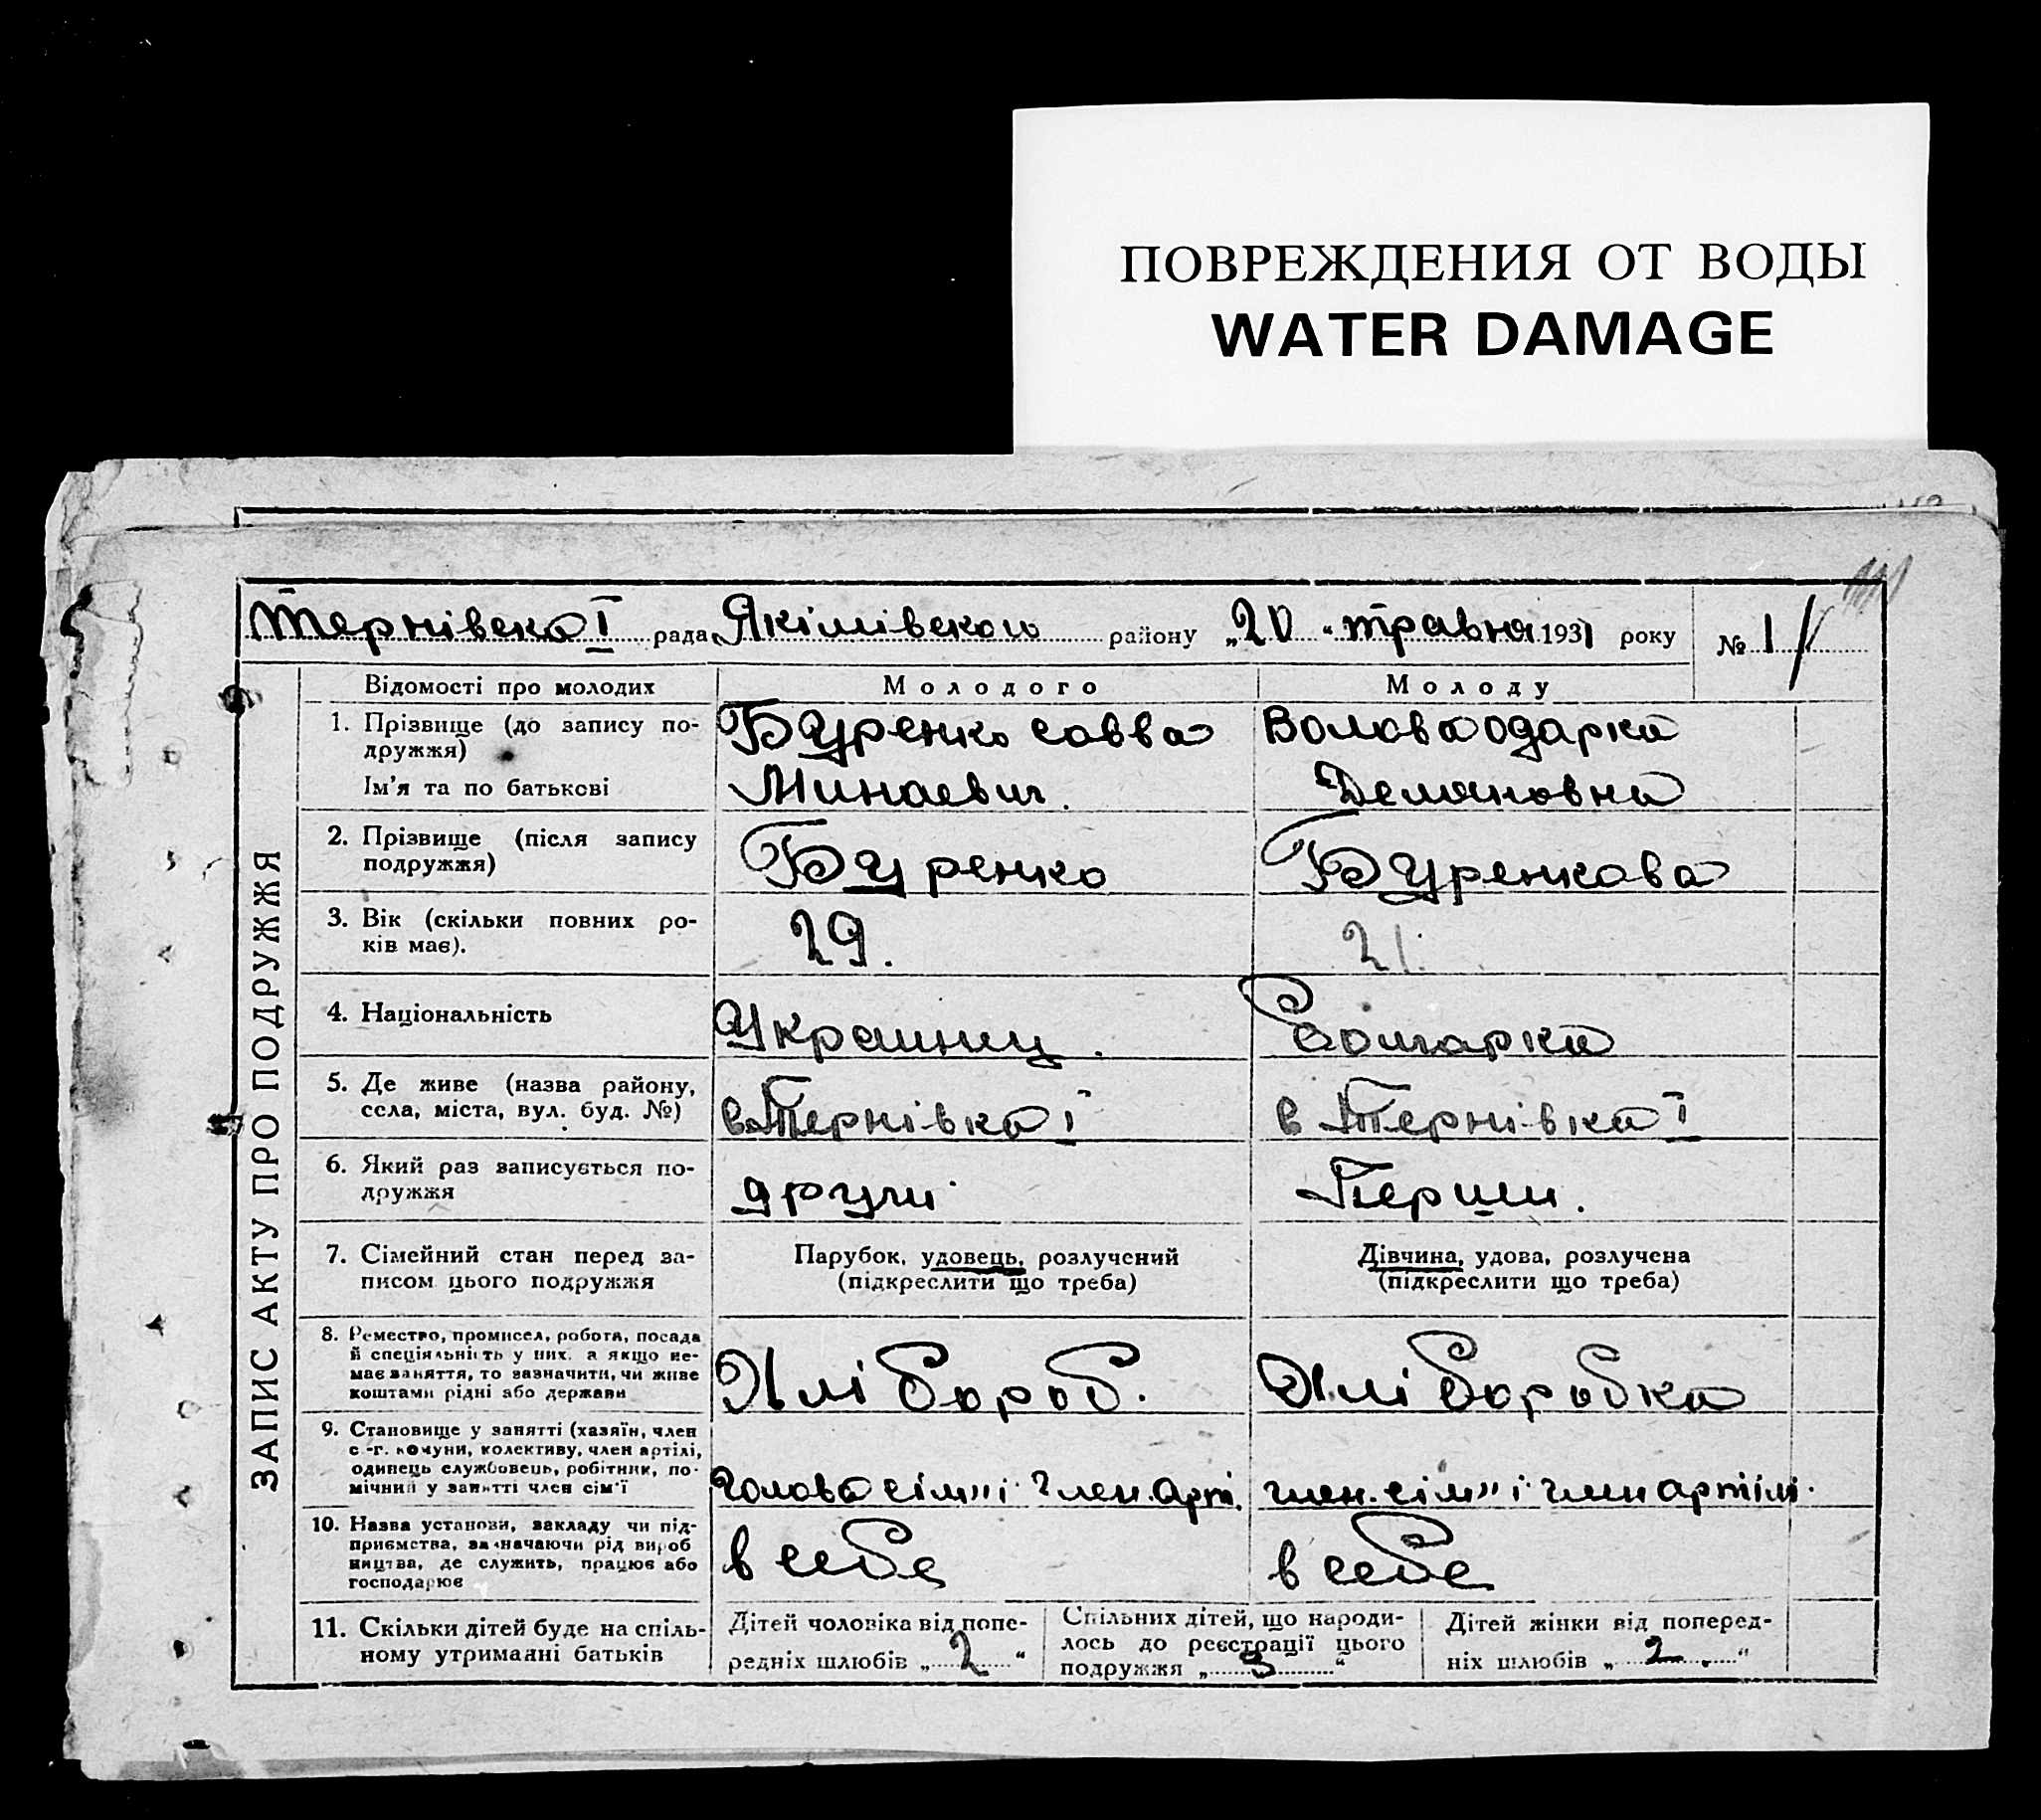 ПОВРЕЖДЕНИЯ ОТ ВОДЫ
WATER DAMAGE
Тернівска І рада Якімівского району „20“ травня 1931 року № 1
ЗАПИС АКТУ ПРО ПОДРУЖЖЯ
Відомості про молодих Молодого Молоду
1. Прізвище (до запису по- Буренко Савва Волова Одарка
дружжя)
Ім'я та по батькові Минаевич. Демяновна
2. Прізвище (після запису Буренко Буренкова
подружжя)
3. Вік (скільки повних ро- 29. 21.
ків має).
4. Національність Украинец. Болгарка
5. Де живе (назва району, в Тернівка І в Тернівка І
села, міста, вул. буд. №)
6. Який раз записується по- други Перши.
дружжя
7. Сімейний стан перед за- Парубок, удовець, розлучений Дівчина, удова, розлучена
писом цього подружжя (підкреслити що треба) (підкреслити що треба)
8. Ремество, промисел, робота, посада
й спеціяльність у них, а якщо не-
має заняття, то зазначити, чи живе Хліbороб. Хліборобка
коштами рідні або держави
9. Становище у занятті (хазяїн, член
с.-г. комуни, колективу, член артілі,
одинець службовець, робітник, по-
мічний у занятті член сім'ї голова сім"і член арті. член. сім"і член артілі.
10. Назва установи, закладу чи під-
приємства, зазначаючи рід вироб
ництва, де служить, працює або в себе в себе
господарює
11. Скільки дітей буде на спіль-
ному утриманні батьків
Дітей чоловіка від попе-
редніх шлюбів „2“
Спільних дітей, що народи-
лось до реєстрації цього
подружжя „3“
Дітей жінки від поперед-
ніх шлюбів „2“